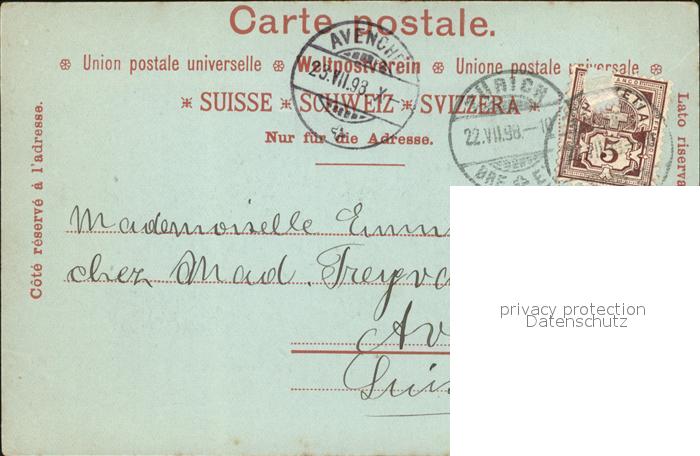 Carte postale.
❊ Union postale universelle ❊ Weltpostverein ❊ Unione postale universale ❊
SUISSE ✶ SCHWEIZ ✶ SVIZZERA
Nur für die Adresse.
Côté réservé à l'adresse.
Lato riserva
AVENCHE
23.VII.98.X
ZÜRICH
22.VII.98.-10
5
Mademoiselle
chez Mad. Treyva
Av
Suis
privacy protection
Datenschutz